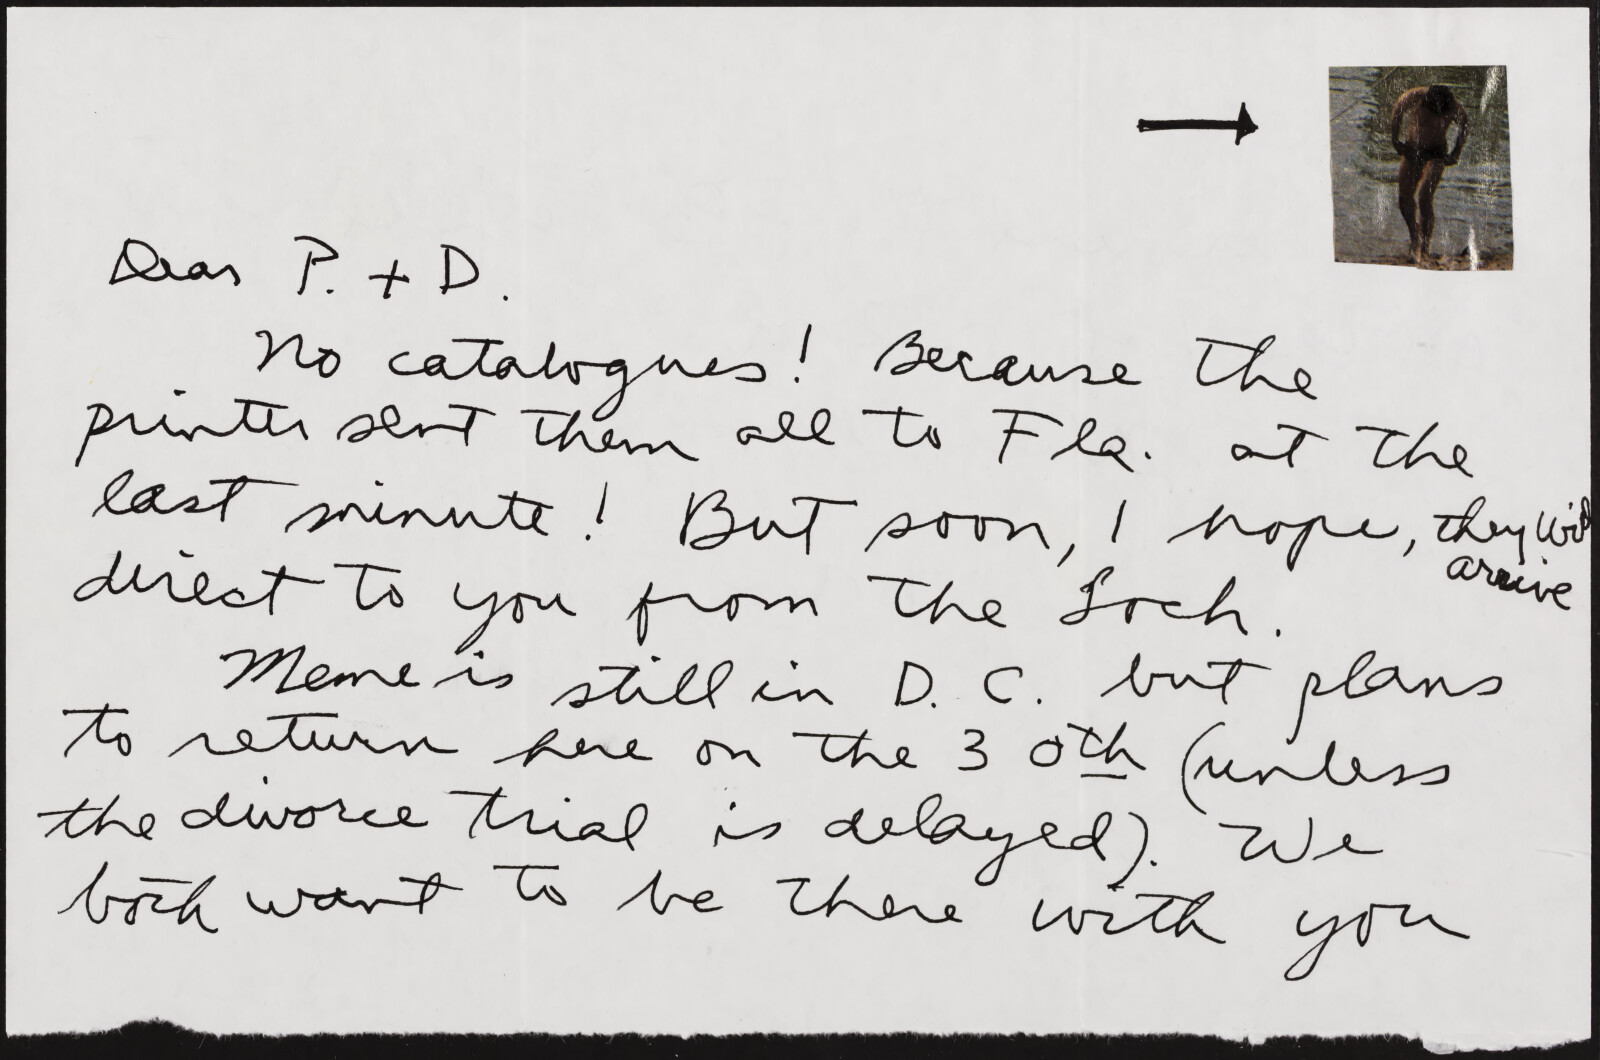 Dear P. + D.
No catalogues! Because the
printer sent them all to Fla. at the
last minute! But soon, I hope, they will
arrive
direct to you from the Loch.
Meme is still in D. C. but plans
to return here on the 30th (unless
the divorce trial is delayed). We
both want to be there with you